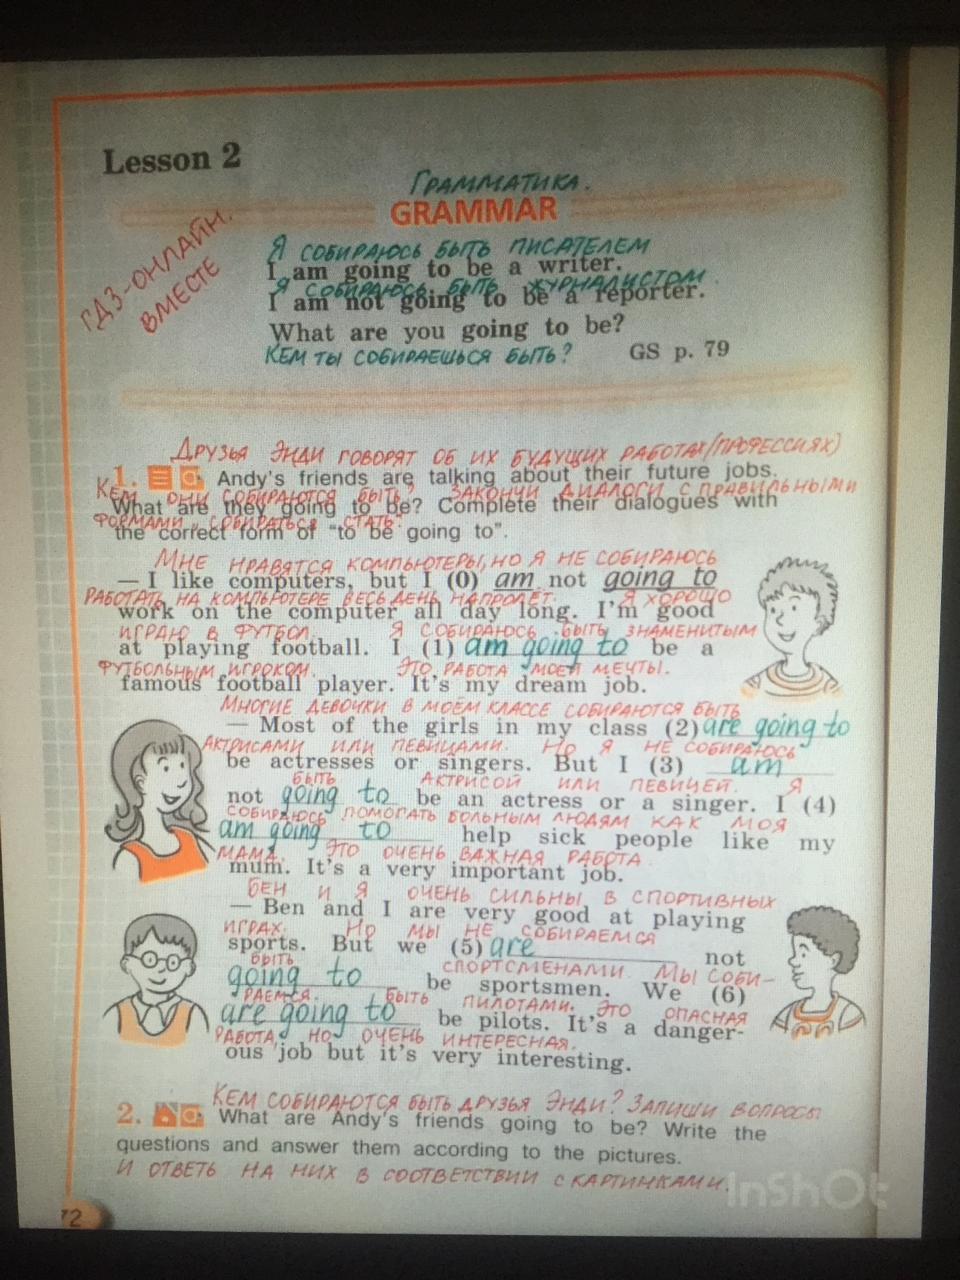 Lesson 2
Грамматика.
GRAMMAR
ГДЗ-ОНЛАЙН.
ВМЕСТЕ
Я СОБИРАЮСЬ БЫТЬ ПИСАТЕЛЕМ
I am going to be a writer.
Я СОБИРАЮСЬ БЫТЬ ЖУРНАЛИСТОМ
I am not going to be a reporter.
What are you going to be?
КЕМ ТЫ СОБИРАЕШЬСЯ БЫТЬ?
GS p. 79
ДРУЗЬЯ ЭНДИ ГОВОРЯТ ОБ ИХ БУДУЩИХ РАБОТАХ/ПРОФЕССИЯХ)
1. Andy's friends are talking about their future jobs.
КЕМ ОНИ СОБИРАЮТСЯ БЫТЬ? ЗАКОНЧИ ДИАЛОГИ С ПРАВИЛЬНЫМИ
What are they going to be? Complete their dialogues with
ФОРМАМИ „СОБИРАТЬСЯ СТАТЬ“
the correct form of "to be going to".
МНЕ НРАВЯТСЯ КОМПЬЮТЕРЫ, НО Я НЕ СОБИРАЮСЬ
— I like computers, but I (0) am not going to
РАБОТАТЬ НА КОМПЬЮТЕРЕ ВЕСЬ ДЕНЬ НАПРОЛЁТ. Я ХОРОШО
work on the computer all day long. I'm good
ИГРАЮ В ФУТБОЛ. Я СОБИРАЮСЬ БЫТЬ ЗНАМЕНИТЫМ
at playing football. I (1) am going to be a
ФУТБОЛЬНЫМ ИГРОКОМ. ЭТО РАБОТА МОЕЙ МЕЧТЫ.
famous football player. It's my dream job.
МНОГИЕ ДЕВОЧКИ В МОЁМ КЛАССЕ СОБИРАЮТСЯ БЫТЬ
— Most of the girls in my class (2) are going to
АКТРИСАМИ ИЛИ ПЕВИЦАМИ. НО Я НЕ СОБИРАЮСЬ
be actresses or singers. But I (3) am
БЫТЬ АКТРИСОЙ ИЛИ ПЕВИЦЕЙ. Я
not going to be an actress or a singer. I (4)
СОБИРАЮСЬ ПОМОГАТЬ БОЛЬНЫМ ЛЮДЯМ КАК МОЯ
am going to help sick people like my
МАМА. ЭТО ОЧЕНЬ ВАЖНАЯ РАБОТА.
mum. It's a very important job.
БЕН И Я ОЧЕНЬ СИЛЬНЫ В СПОРТИВНЫХ
— Ben and I are very good at playing
ИГРАХ. НО МЫ НЕ СОБИРАЕМСЯ
sports. But we (5) are not
БЫТЬ СПОРТСМЕНАМИ. МЫ СОБИ-
going to be sportsmen. We (6)
РАЕМСЯ БЫТЬ ПИЛОТАМИ. ЭТО ОПАСНАЯ
are going to be pilots. It's a danger-
РАБОТА, НО ОЧЕНЬ ИНТЕРЕСНАЯ.
ous job but it's very interesting.
КЕМ СОБИРАЮТСЯ БЫТЬ ДРУЗЬЯ ЭНДИ? ЗАПИШИ ВОПРОСЫ
2. What are Andy's friends going to be? Write the
questions and answer them according to the pictures.
И ОТВЕТЬ НА НИХ В СООТВЕТСТВИИ С КАРТИНКАМИ.
InShOt
72